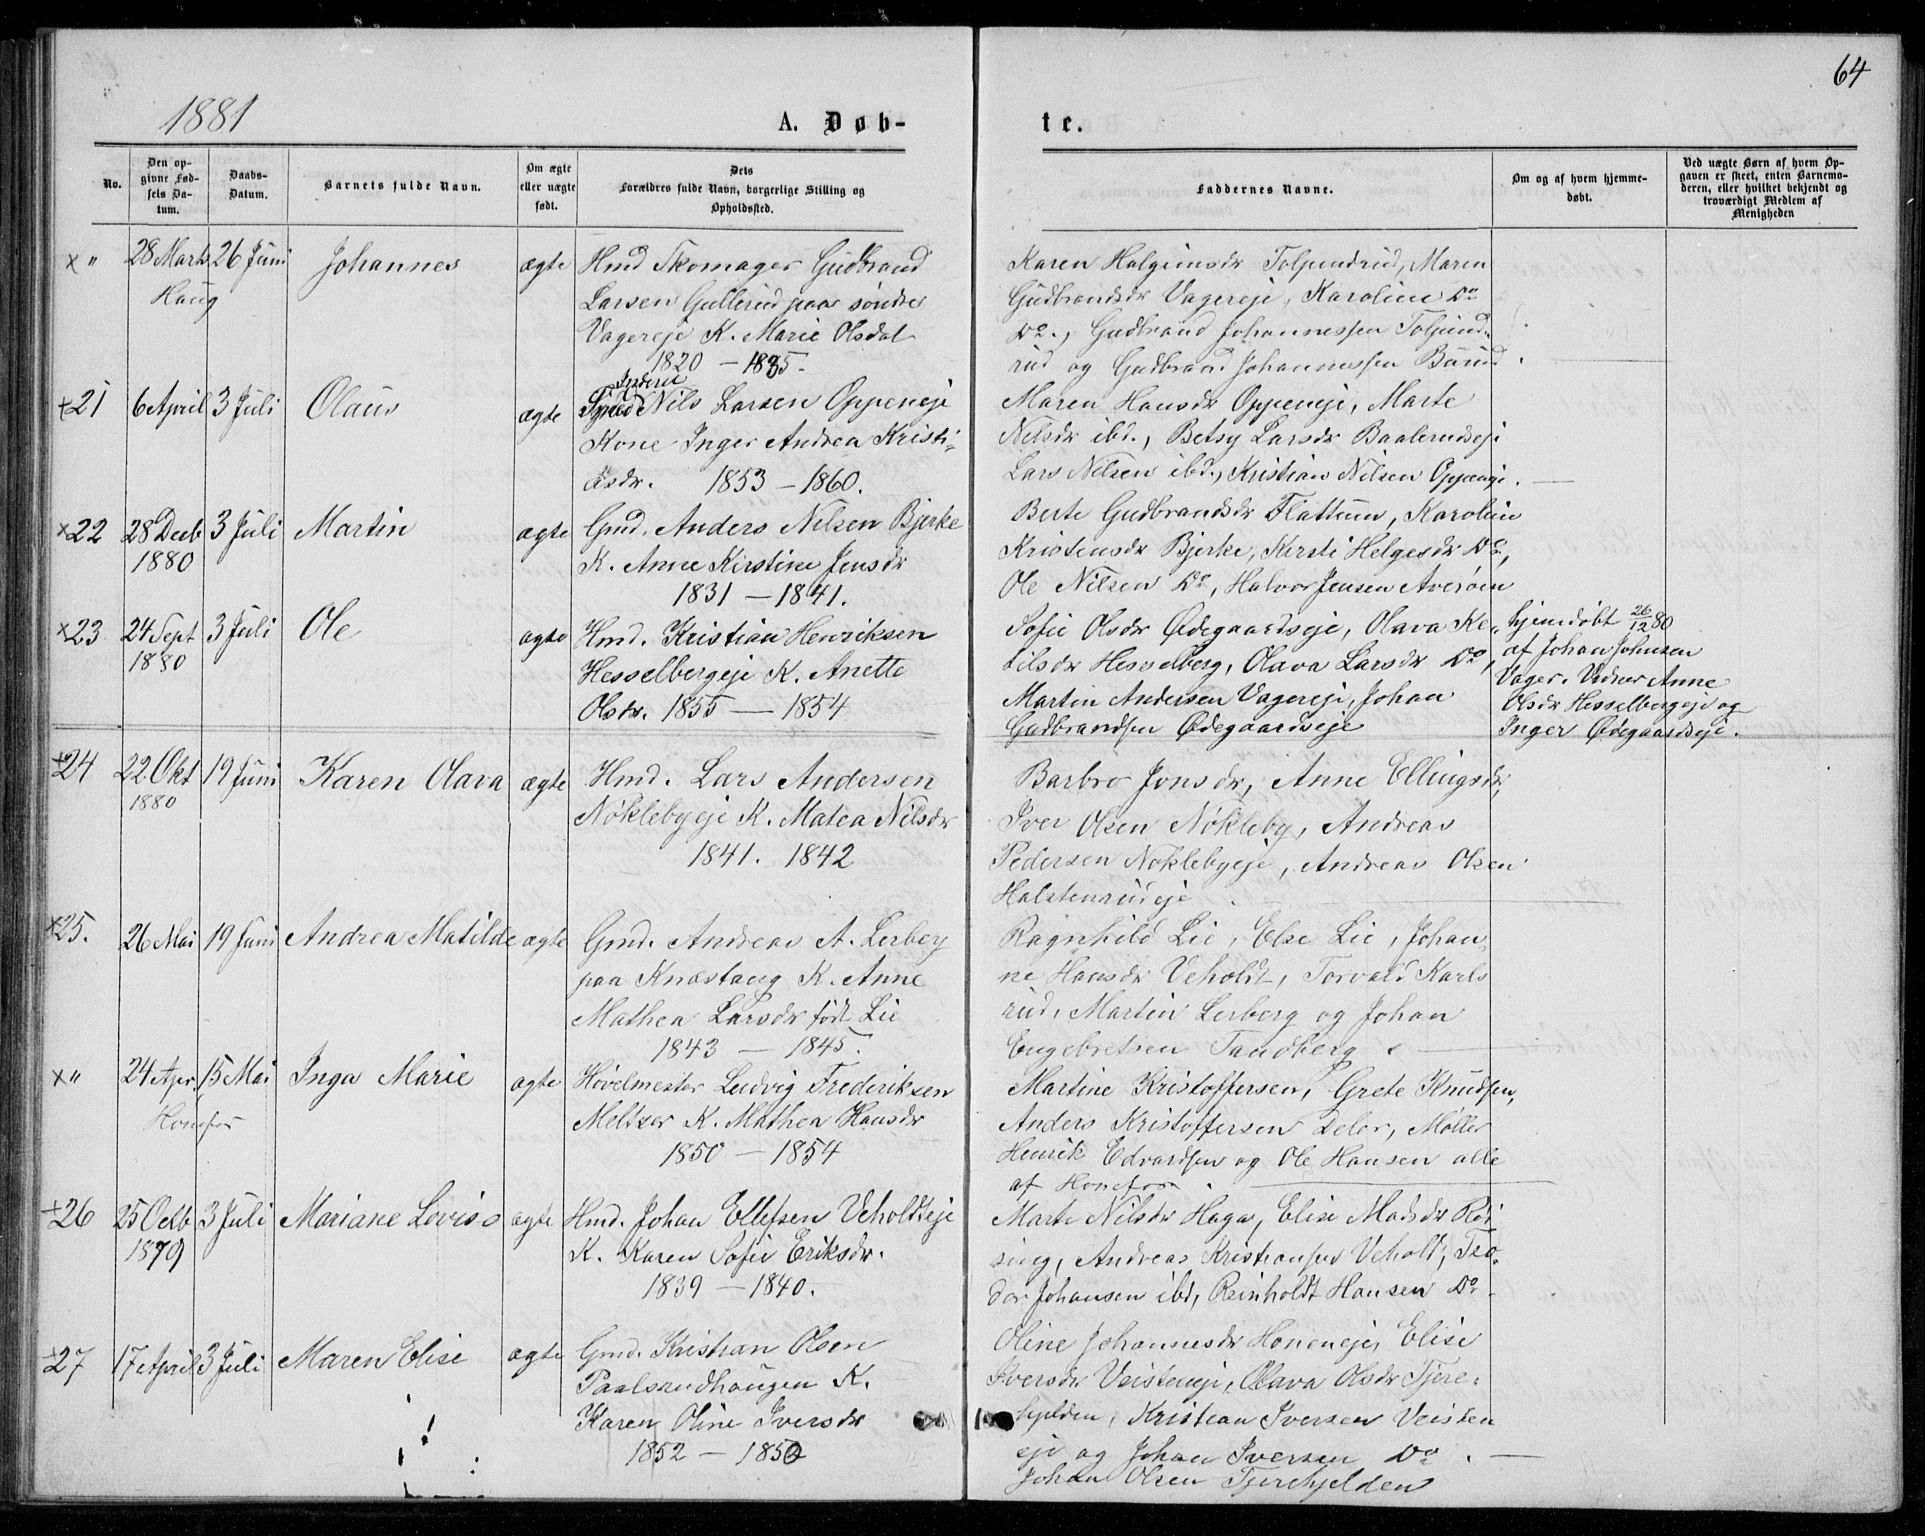 64
1881
A. Døb-
te.
No.
Den op-
givne Fød-
sels Da-
tum.
Daabs-
Datum.
Barnets fulde Navn.
Om ægte
eller uægte
født.
Dets
Forældres fulde Navn, borgerlige Stilling og
Opholdssted.
Faddernes Navne.
Om og af hvem hjemme-
døbt.
Ved uægte Børn af hvem Op-
gaven er skeet, enten Barnemo-
deren, eller hvilket bekjendt og
troværdigt Medlem af
Menigheden
× "
28 Marts
Haug
26 Juni
Johannes
ægte
Hmd Skomager Gudbrand
Larsen Gullerud paa søndre
Vagereje K. Marie Olsdat
1820 — 1835.
Karen Halgrimsdr Tolpundrud, Maren
Gudbrandsdr Vagereje, Karoline Do
Do., Gudbrand Johannessen Tolpund-
rud og Gudbrand Johannessen Burud.
×21
6 April
3 Juli
Olaus
ægte
Inderst
Smed Nils Larsen Oppeneje
Kone Inger Andrea Kristi-
asdr. 1853 — 1860.
Maren Hansdr Oppeneje, Marte
Nilsdr ibd., Betsy Larsdr Baalerudseje
Lars Nilsen ibd., Kristian Nilsen Oppeneje.
×22
28 Decb
1880
3 Juli
Martin
ægte
Gmd. Anders Nilsen Bjerke
K. Anne Kirstine Jensdr
1831 — 1841.
Berte Gudbrandsdr Flattum, Karoline
Kristensdr Bjerke, Kersti Helgesdr Do,
Ole Nilsen Do, Halvor Jensen Averøen
×23
24 Sept
1880
3 Juli
Ole
ægte
Hmd. Kristian Henriksen
Hesselbergeje K. Anette
Olsdr. 1855 — 1854
Sofie Olsdr Ødegaardseje, Olava Ke-
tilsdr Hesselberg, Olava Larsdr Do,
Martin Andersen Vagereje, Johan
Gudbrandsen Ødegaardseje
hjemdøbt 26/12 80
af Johan Johnsen
Vager. Vidner Anne
Olsdr Hesselbergeje og
Inger Ødegaardseje.
×24
22 Okt
1880
19 Juni
Karen Olava
ægte
Hmd. Lars Andersen
Nøklebyeje K. Matea Nilsdr
1841. 1842
Barbro Jonsdr, Anne Ellingsdr,
Iver Olsen Nøkleby, Andreas
Pedersen Nøklebyeje, Andreas Olsen
Halstenrudeje
×25.
26 Mai
19 Juni
Andrea Matilde
ægte
Gmd. Andreas A. Lerberg
paa Knæstang K. Anne
Mathea Larsdr født Lie
1843 — 1845.
Ragnhild Lie, Else Lie, Johan-
ne Hansdr Veholdt, Torvald Karls
rud, Martin Lerberg og Johan
Engebretsen Tandberg
× "
24 Apr
Honefos
15 Mai
Inga Marie
ægte
Høvelmester Ludvig Frederiksen
Meltzer K. Mathea Hansdr
1850 — 1854
Martine Kristoffersen, Grete Knudsen,
Anders Kristoffersen Deler, Møller
Henrik Edvardsen og Ole Hansen alle
af Honefos.
×26
25 Octb
1879
3 Juli
Mariane Lovise
ægte
Hmd. Johan Ellefsen Veholdteje
K. Karen Sofie Eriksdr.
1839 — 1840.
Marte Nilsdr Haga, Elise Madsdr Ri-
sing, Andreas Kristiansen Veholt, Teo-
dor Johansen ibd, Reinholdt Hansen Do.
×27
17 April
3 Juli
Maren Elise
ægte
Gmd. Kristian Olsen
Paalsrudhaugen K.
Karen Oline Iversdr
1852 — 1850
Oline Johannesdr Honeneje, Elise
Iversdr Veisteneje, Olava Olsdr Tjere-
hjelden, Kristian Iversen Veisten
eje og Johan Iversen Do.
Johan Olsen Tjerehjelden